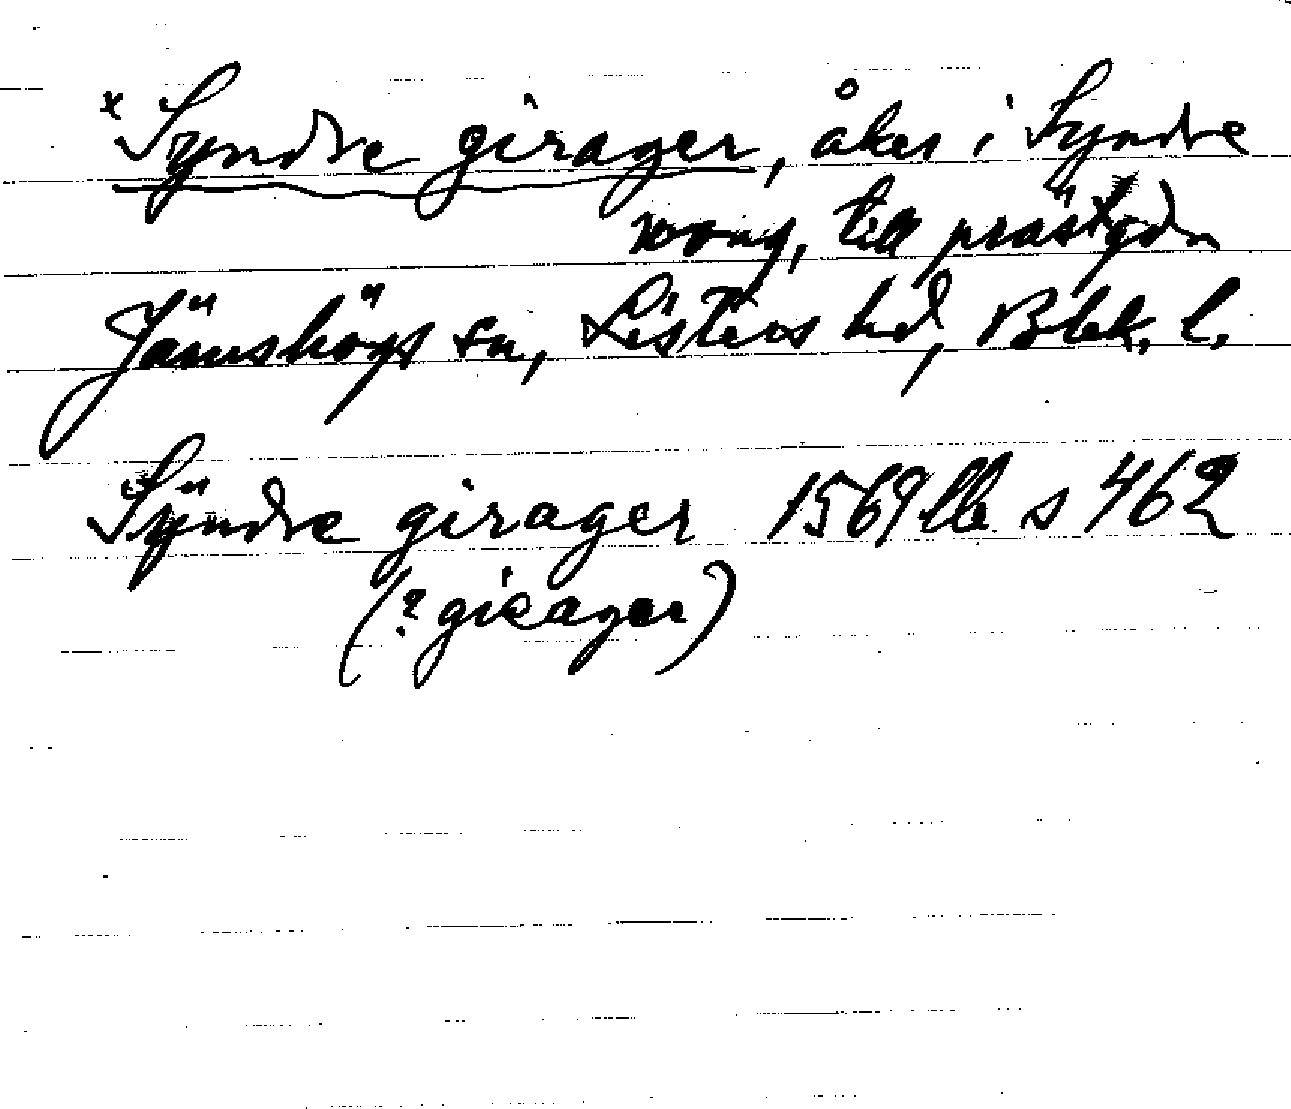 *Syndre girager, åker i Syndre
wong, till prästgdn
Jämshögs sn, Listers hd, Blek. l.
Sÿndre girager 1569 llb s 462
(? gieager)